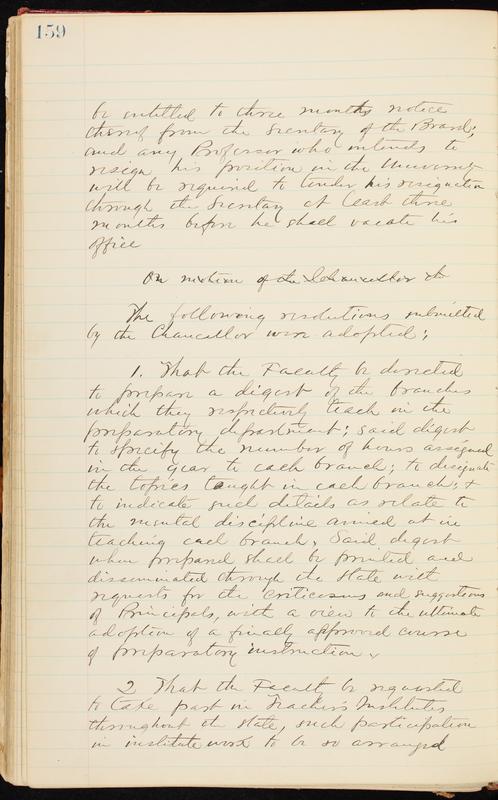 159
be entitled to three months notice
thereof from the Secretary of the Board;
and any Professor who intends to
resign his position in the University
will be required to tender his resignation
through the Secretary at least three
months before he shall vacate his
office
On motion of the Chancellor the
The following resolutions submitted
by the Chancellor were adopted;
1. That the Faculty be directed
to prepare a digest of the branches
which they respectively teach in the
preparatory department; said digest
to specify the number of hours assigned
in the year to each branch; to designate
the topics taught in each branch; +
to indicate such details as relate to
the mental discipline aimed at in
teaching each branch. Said digest
when prepared shall be printed and
disseminated through the State with
requests for the criticisms and suggestions
of Principals, with a view to the ultimate
adoption of a finally approved course
of preparatory instruction.
2 That the Faculty be requested
to take part in Teacher's Institutes
throughout the State, such participation
in institute work to be so arranged